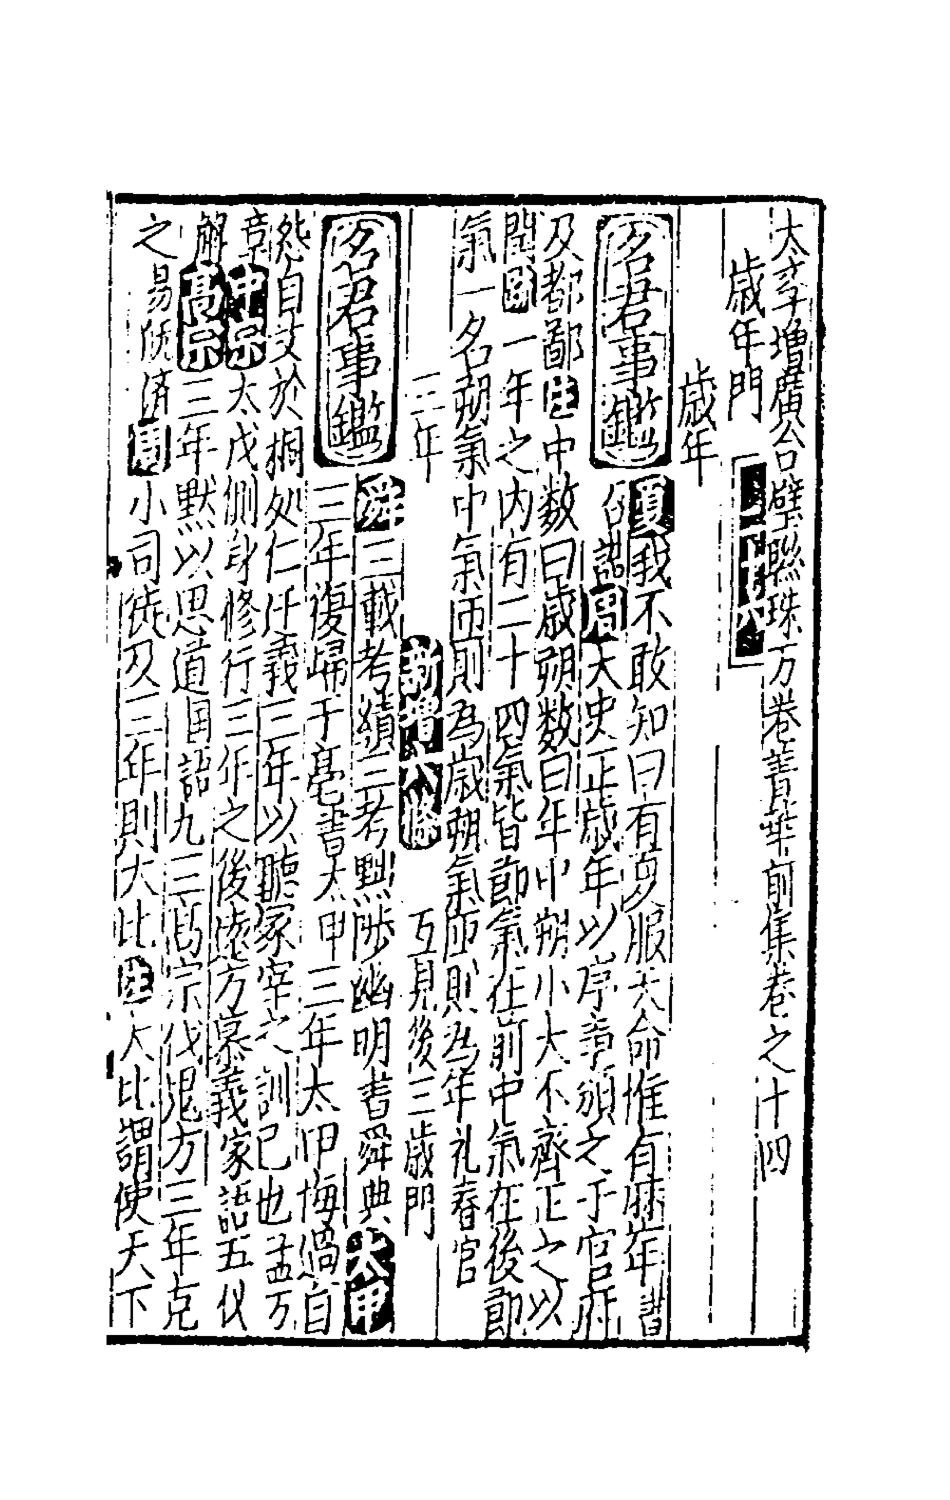 太孝增廣合璧聯珠万卷菁華前集卷之十四
歲年門 二十八
歲年
名君事鑑 夏我不敢知曰有夏服天命惟有歴年書
召誥周大史正歲年以序事頒之于官府
及都鄙注中数曰歲朔数曰年中朔小大不齊正之以
閏圖一年之内有二十四氣皆節氣在前中氣在後節
氣一名朔氣中氣匝則為歲朔氣匝則為年礼春官
三年 新增六條 互見後三歲門
名君事鑑 舜三載考績三考黜陟幽明書舜典太甲
三年復歸于亳書太甲三年太甲悔過自
怨自艾於桐処仁迁義三年以聽冢宰之訓已也孟万
章中宗太戊側身修行三年之後遠方慕義家語五仪
解高宗三年默以思道国語九三高宗伐鬼方三年克
之易既濟周小司徒及三年則大比注大比謂使天下